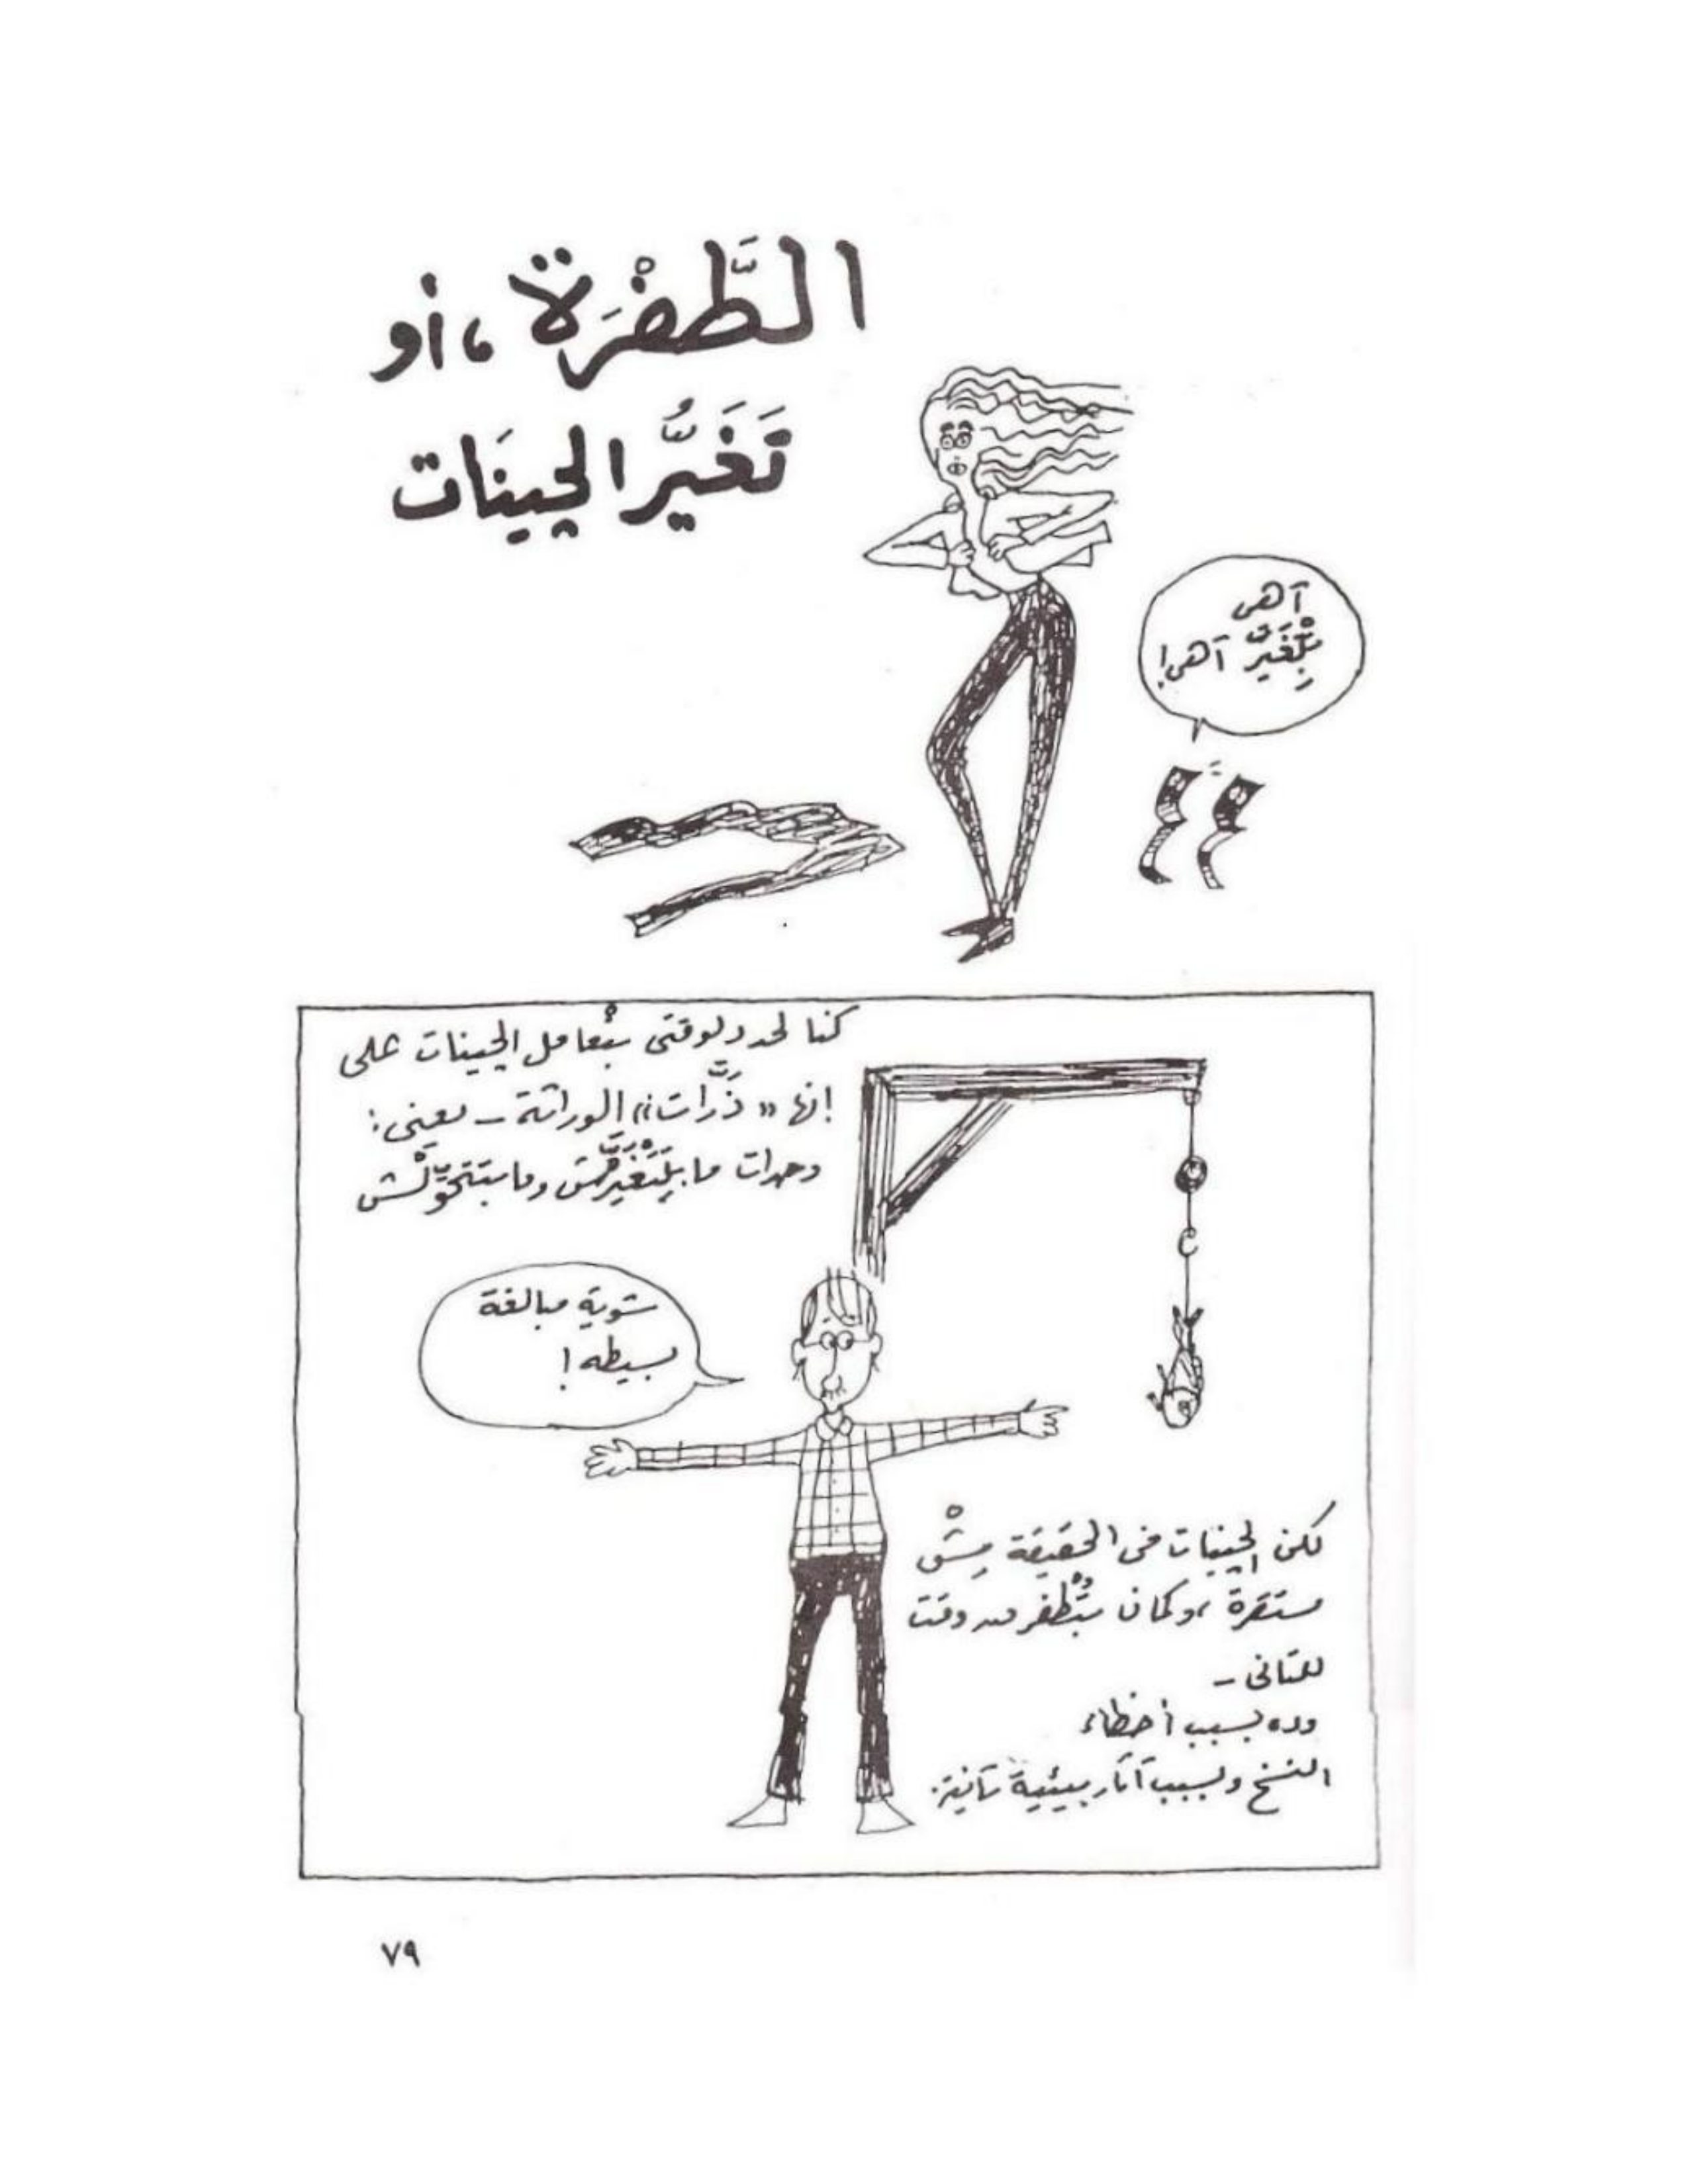 الطَّفْرَة، أو
تَغَيُّر الجينَات
آهى
بِتْغَيَّر آهى!
كنا لحد دلوقتى بنْعامل الجينات على
إنها «ذَرَّات» الوراثة – يعنى:
وحدات ما بِتِتْغَيَّرْش وما بتتحوِّلْش
شوية مبالغة
بسيطه!
لكن الجينات فى الحقيقة مِشْ
مستقرة، وكمان بتُطْفر من وقت
للتانى –
وده بسبب أخطاء
النسخ وبسبب آثار بيئية تانية.
٧٩